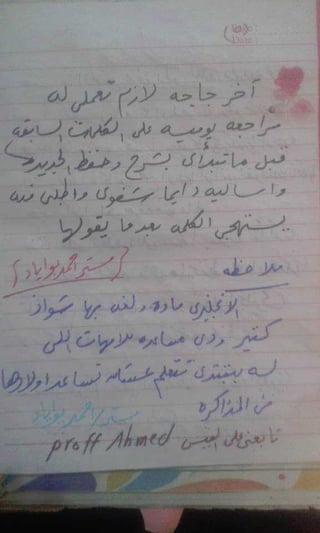 آخر حاجه لازم تعملى له
مراجعه يوميه على الكلمات السابقه
قبل ماتبدأى بشرح وحفظ الجديده
واساليه دايما شفوى واطلبى منه
يستهجى الكلمه بعدما يقولها
(مستر احمد ابو اياد)
ملاحظه
الانجليزى ماده ولغه بها شواذ
كتير ودى مساعده للامهات اللى
لسه بتبتدى تتعلم عشان تساعد اولادها
فى المذاكره مستر/احمد ابو اياد
تابعنى على الفيس proff Ahmed